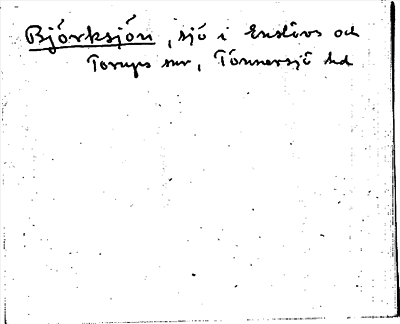 Björksjön, sjö i Enslövs och
Torups snr, Tönnersjö hd